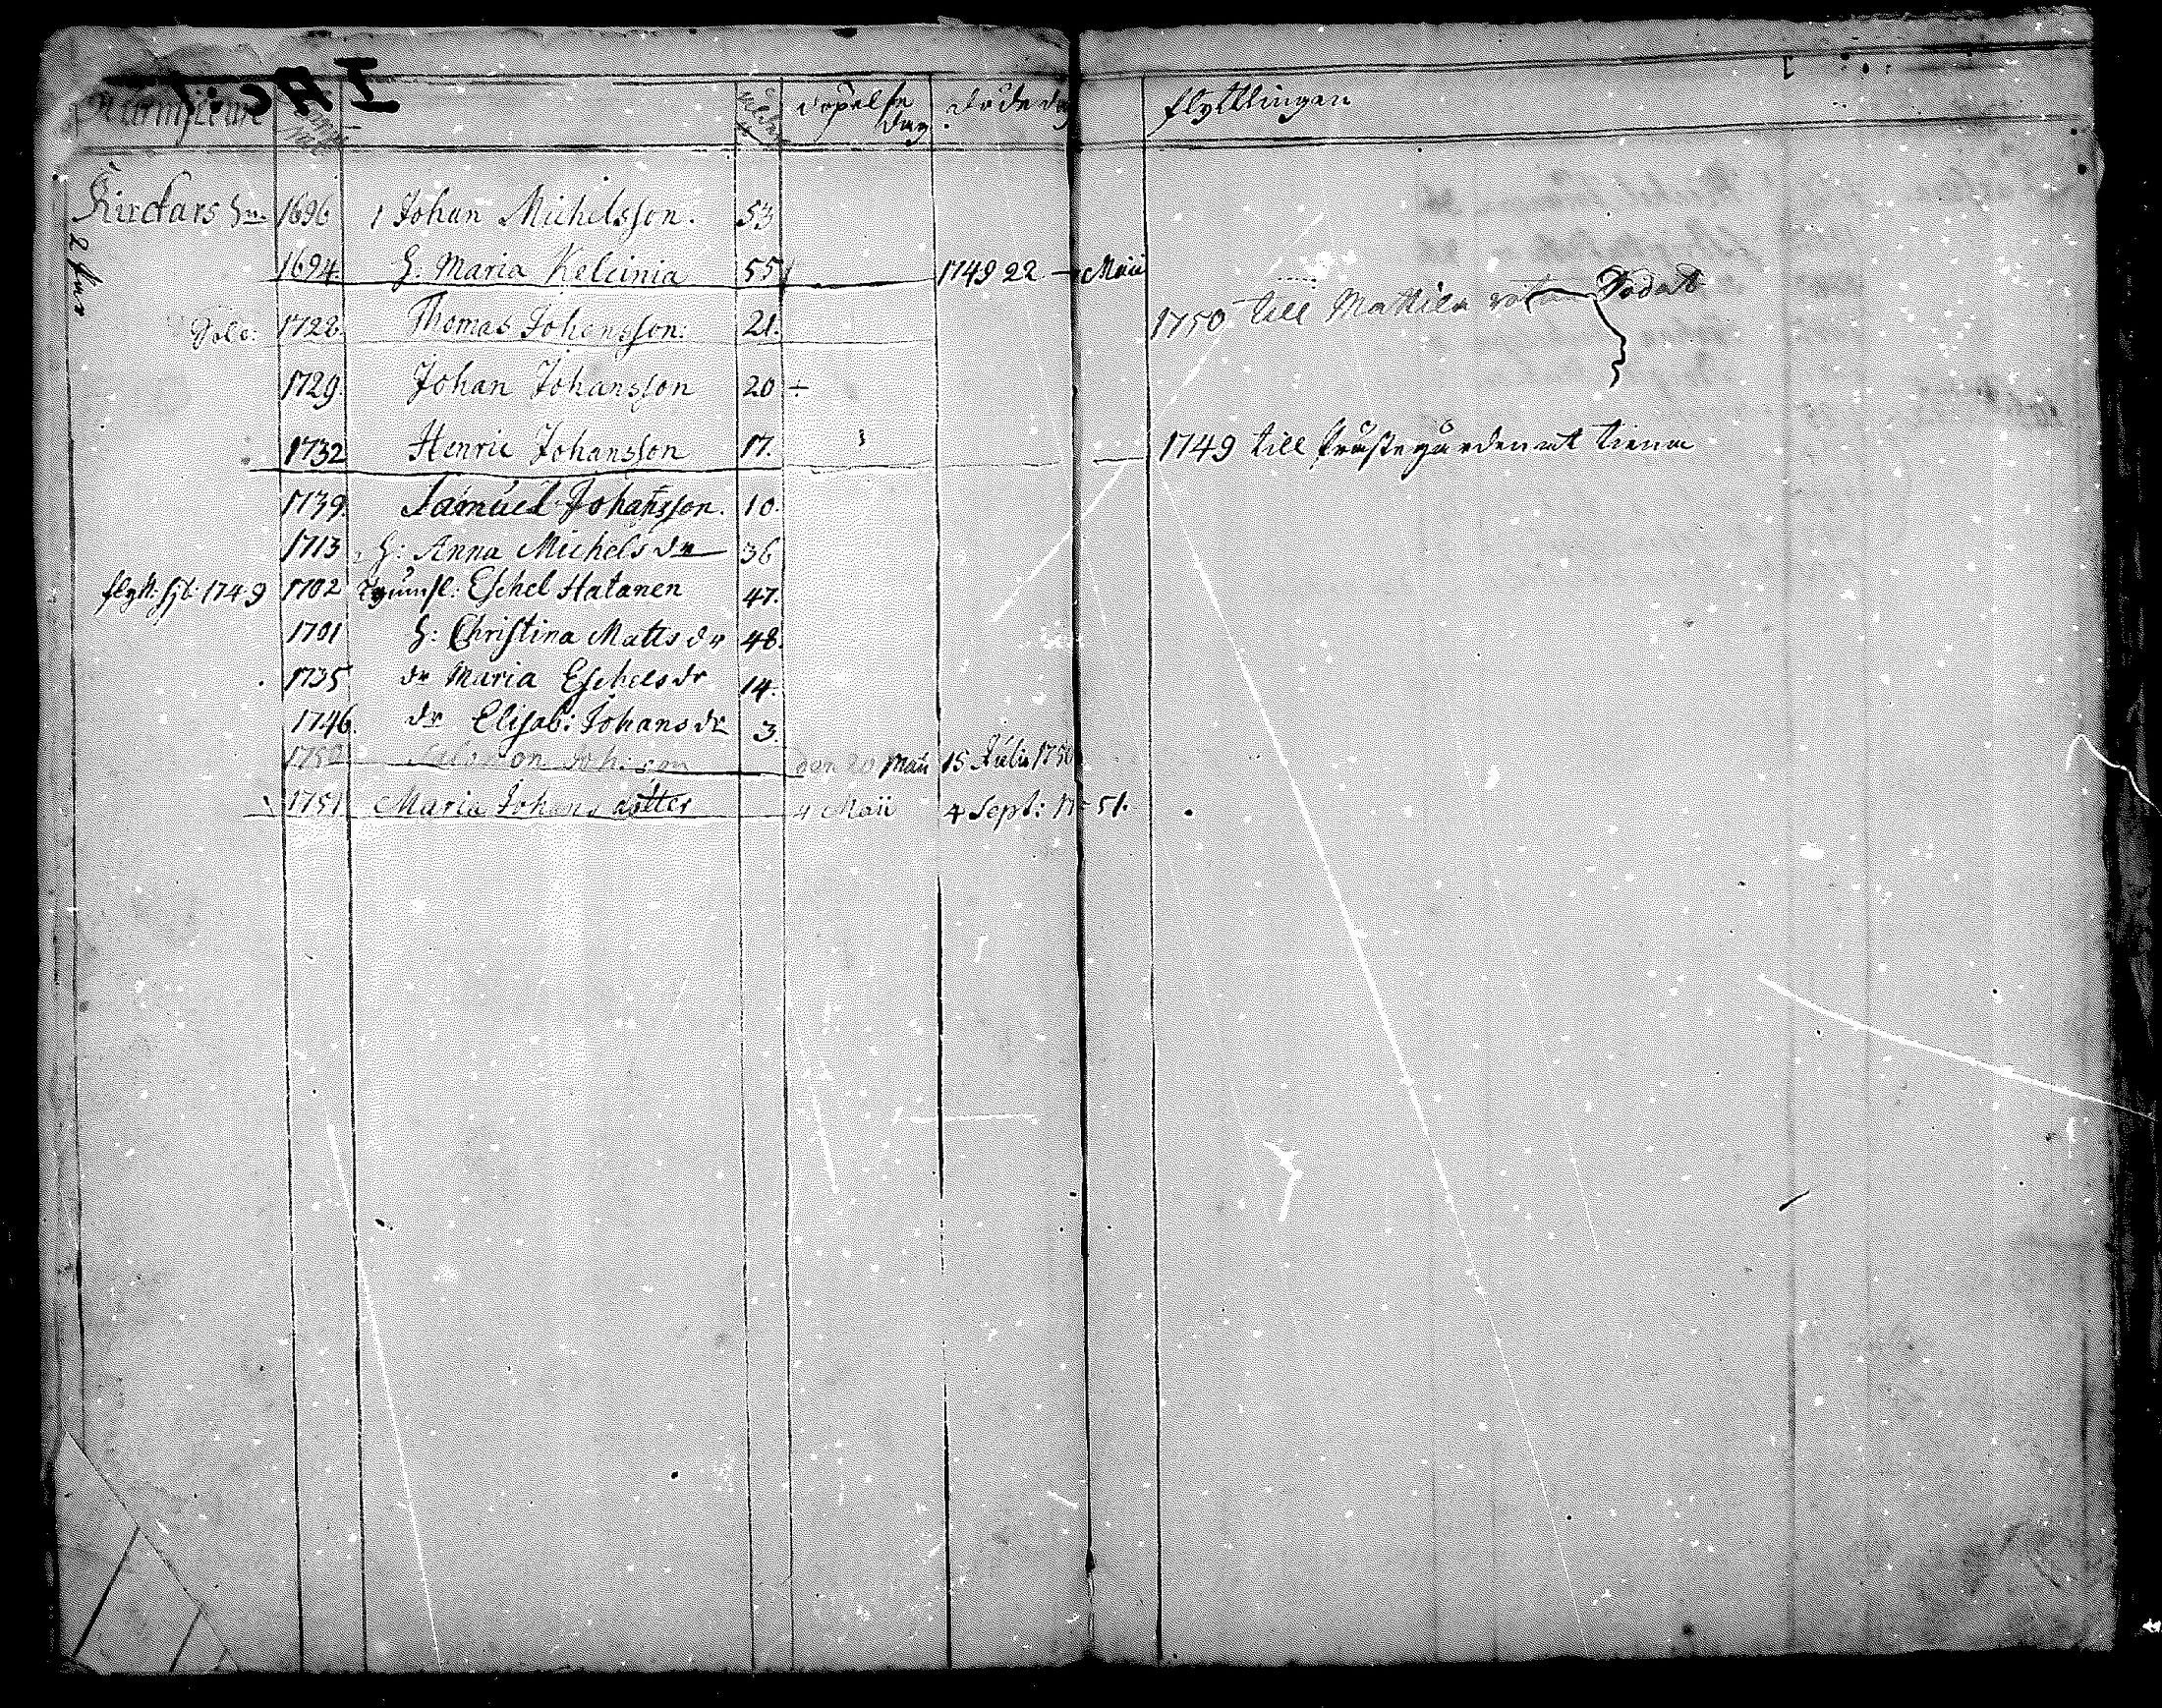 I A c:1
dopelse dag döde dag flyttningen
Kirckars 1696 1 Johan Michelsson. 53
1694. h: Maria Kelcinia 55 1749 22 Maii
1728. Thomas Johansson: 21. 1750 till Mattila
1729. Johan Johansson 20
1732 Henric Johansson 17. 1749 till Prästegården att tiena
1739. Samuel Johansson. 10.
1713 h: Anna Michels dr 36
flytt: 1749 1702 Eschel Hatanen 47.
1701 h: Christina Matts dr 48.
1735 dr Maria Eschels dr 14.
1746. dr Elisab: Johans dr 3.
Salomon Joh: son den 20 Maii 15 Julii 1750
1751 Maria Johans dotter 4 Maii 4 Sept: 1751.
2